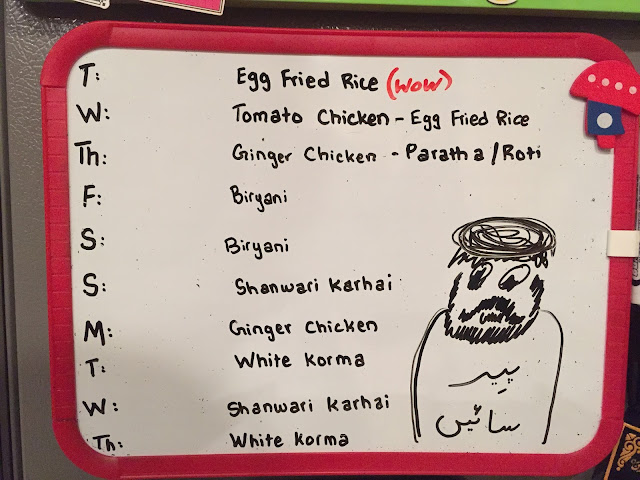 T: Egg Fried Rice (wow)
W: Tomato Chicken - Egg Fried Rice
Th: Ginger Chicken - Paratha/Roti
F: Biryani
S: Biryani
S: Shanwari Karhai
M: Ginger Chicken
T: White Korma
W: Shanwari Karhai
Th: White Korma
پیر
سائیں